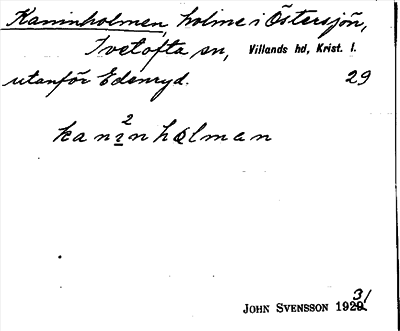 Kaninholmen, holme i Östersjön,
Ivetofta sn, Villands hd, Krist. l.
utanför Edenryd. 29
2
kaninhɷlman
JOHN SVENSSON 1929. 31